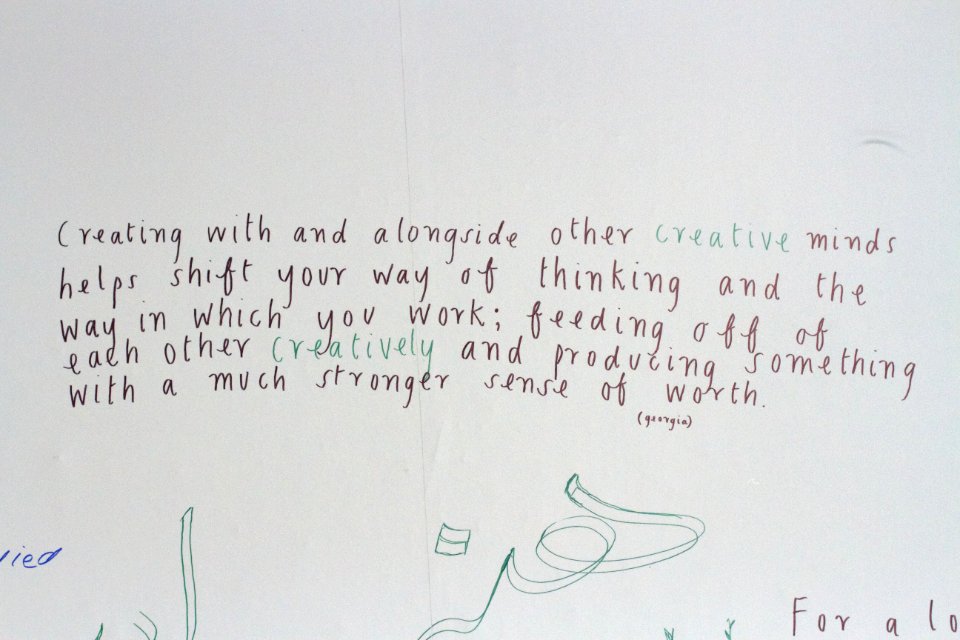 Creating with and alongside other creative minds
helps shift your way of thinking and the
way in which you work; feeding off of
each other creatively and producing something
with a much stronger sense of worth.
(georgia)
For a lo